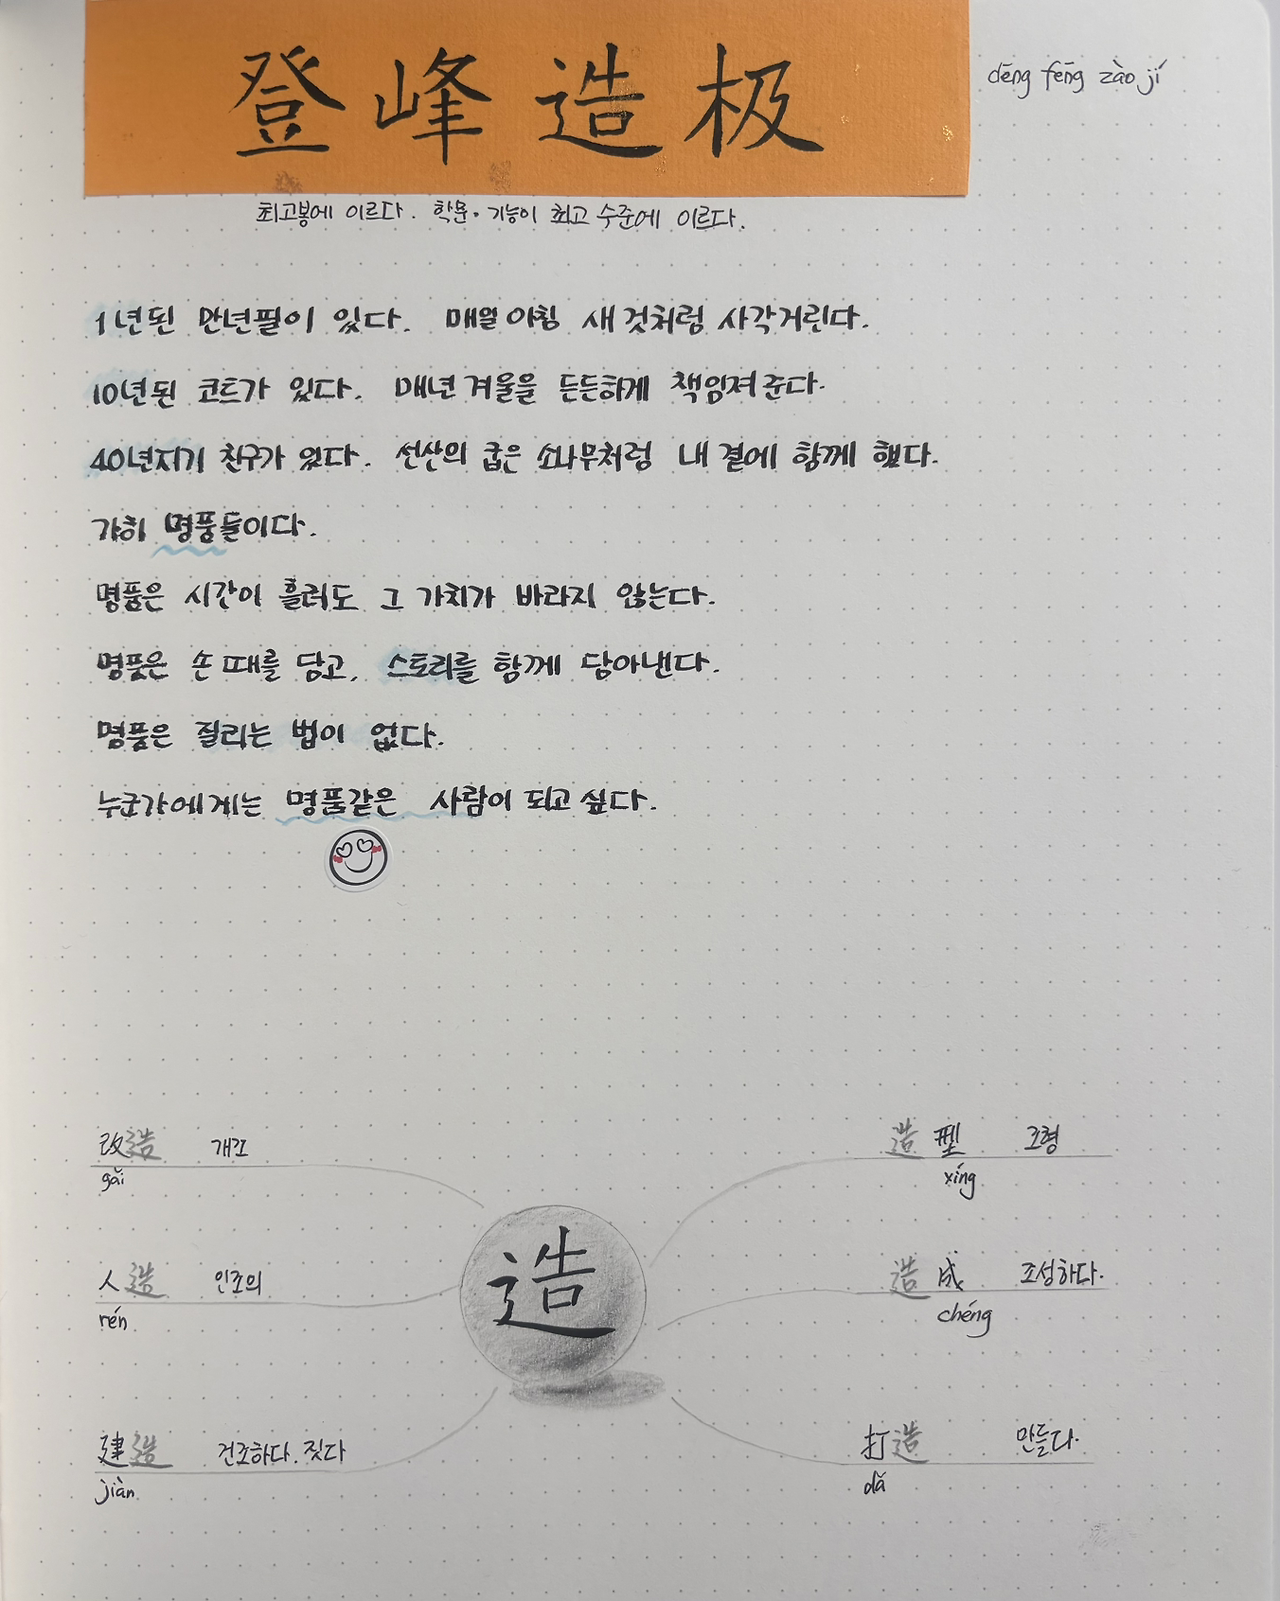 登峰造极
dēng fēng zào jí
최고봉에 이르다. 학문·기능이 최고 수준에 이르다.
1년된 만년필이 있다. 매일 아침 새 것처럼 사각거린다.
10년된 코트가 있다. 매년 겨울을 든든하게 책임져 준다.
40년지기 친구가 있다. 선산의 굽은 소나무처럼 내 곁에 함께 했다.
가히 명품들이다.
명품은 시간이 흘러도 그 가치가 바라지 않는다.
명품은 손 때를 담고, 스토리를 함께 담아낸다.
명품은 질리는 법이 없다.
누군가에게는 명품같은 사람이 되고 싶다.
改造 개조
gǎi
人造 인조의
rén
建造 건조하다. 짓다
jiàn
造
造型 조형
xíng
造成 조성하다.
chéng
打造 만들다.
dǎ